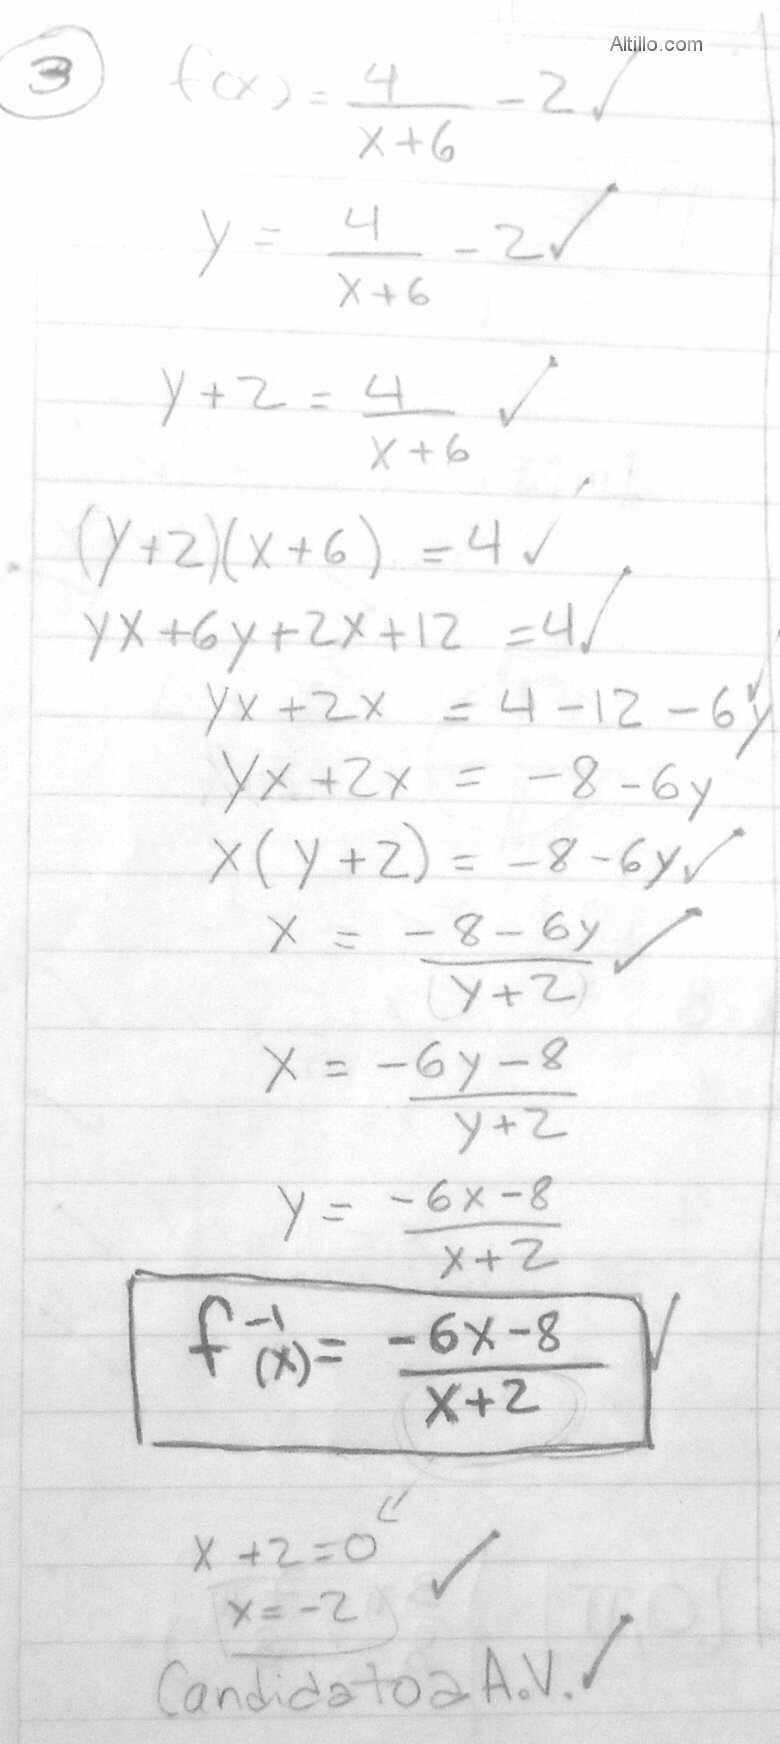 Altillo.com
3 f(x) = 4/(x+6) - 2 ✓
y = 4/(x+6) - 2 ✓
y + 2 = 4/(x+6) ✓
(y+2)(x+6) = 4 ✓
yx + 6y + 2x + 12 = 4 ✓
yx + 2x = 4 - 12 - 6y ✓
yx + 2x = -8 - 6y
x(y+2) = -8 - 6y ✓
x = (-8 - 6y)/(y+2) ✓
x = (-6y - 8)/(y+2)
y = (-6x - 8)/(x+2)
f⁻¹(x) = (-6x - 8)/(x+2) ✓
x + 2 = 0 ✓
x = -2
Candidato a A.V. ✓